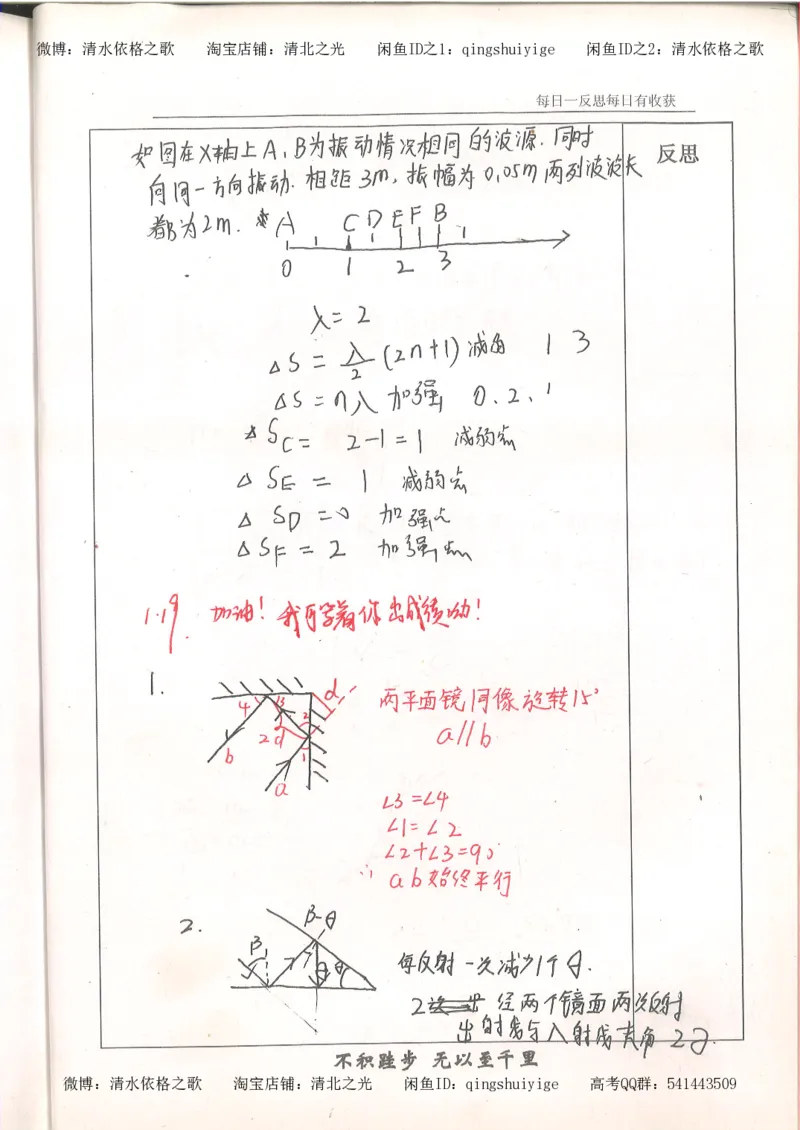 微博：清水依格之歌 淘宝店铺：清北之光 闲鱼ID之1：qingshuiyige 闲鱼ID之2：清水依格之歌
每日一反思每日有收获
反思
如图在X轴上A，B为振动情况相同的波源．同时
向同一方向振动．相距3m，振幅为0.05m两列波波长
都为2m．
A C D E F B
0 1 2 3
λ=2
△S=λ/2(2n+1) 减弱 1 3
△S=nλ 加强 0、2、
△SC= 2-1=1 减弱点
△SE = 1 减弱点
△SD =0 加强点
△SF = 2 加强点
1.19. 加油！
1.
4 3 2 d
b 2 1
a
两平面镜同像旋转15°
a//b
∠3=∠4
∠1=∠2
∠2+∠3=90
∴ ab始终平行
2.
β β-θ
θ
每反射一次减少1个θ．
2 经两个镜面两次反射
出射线与入射成夹角2θ．
不积跬步 无以至千里
微博：清水依格之歌 淘宝店铺：清北之光 闲鱼ID：qingshuiyige 高考QQ群：541443509